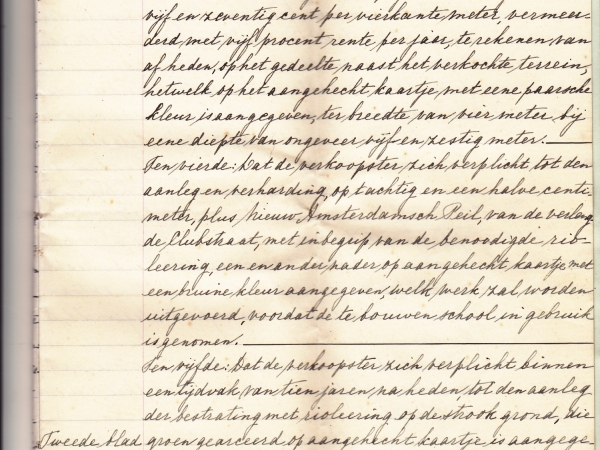 vijf en zeventig cent per vierkante meter, vermeer-
derd met vijf procent rente per jaar, te rekenen van
af heden, op het gedeelte, naast het verkochte terrein,
hetwelk op het aangehecht kaartje met eene paarsche
kleur is aangegeven, ter breedte van vier meter bij
eene diepte van ongeveer vijf en zestig meter.
Ten vierde: Dat de verkoopster zich verplicht tot den
aanleg en verharding, op tachtig en een halve centi-
meter, plus Nieuw Amsterdamsch Peil, van de verleng-
de Clubstraat, met inbegrip van de benoodigde rio-
leering, een en ander nader op aangehecht kaartje met
een bruine kleur aangegeven, welk werk zal worden
uitgevoerd, voordat de te bouwen school in gebruik
is genomen.
Ten vijfde: Dat de verkoopster zich verplicht binnen
een tijdvak van tien jaren na heden, tot den aanleg
der bestrating met rioleering op de strook grond, die
Tweede blad groen gearceerd op aangehecht kaartje is aangege-